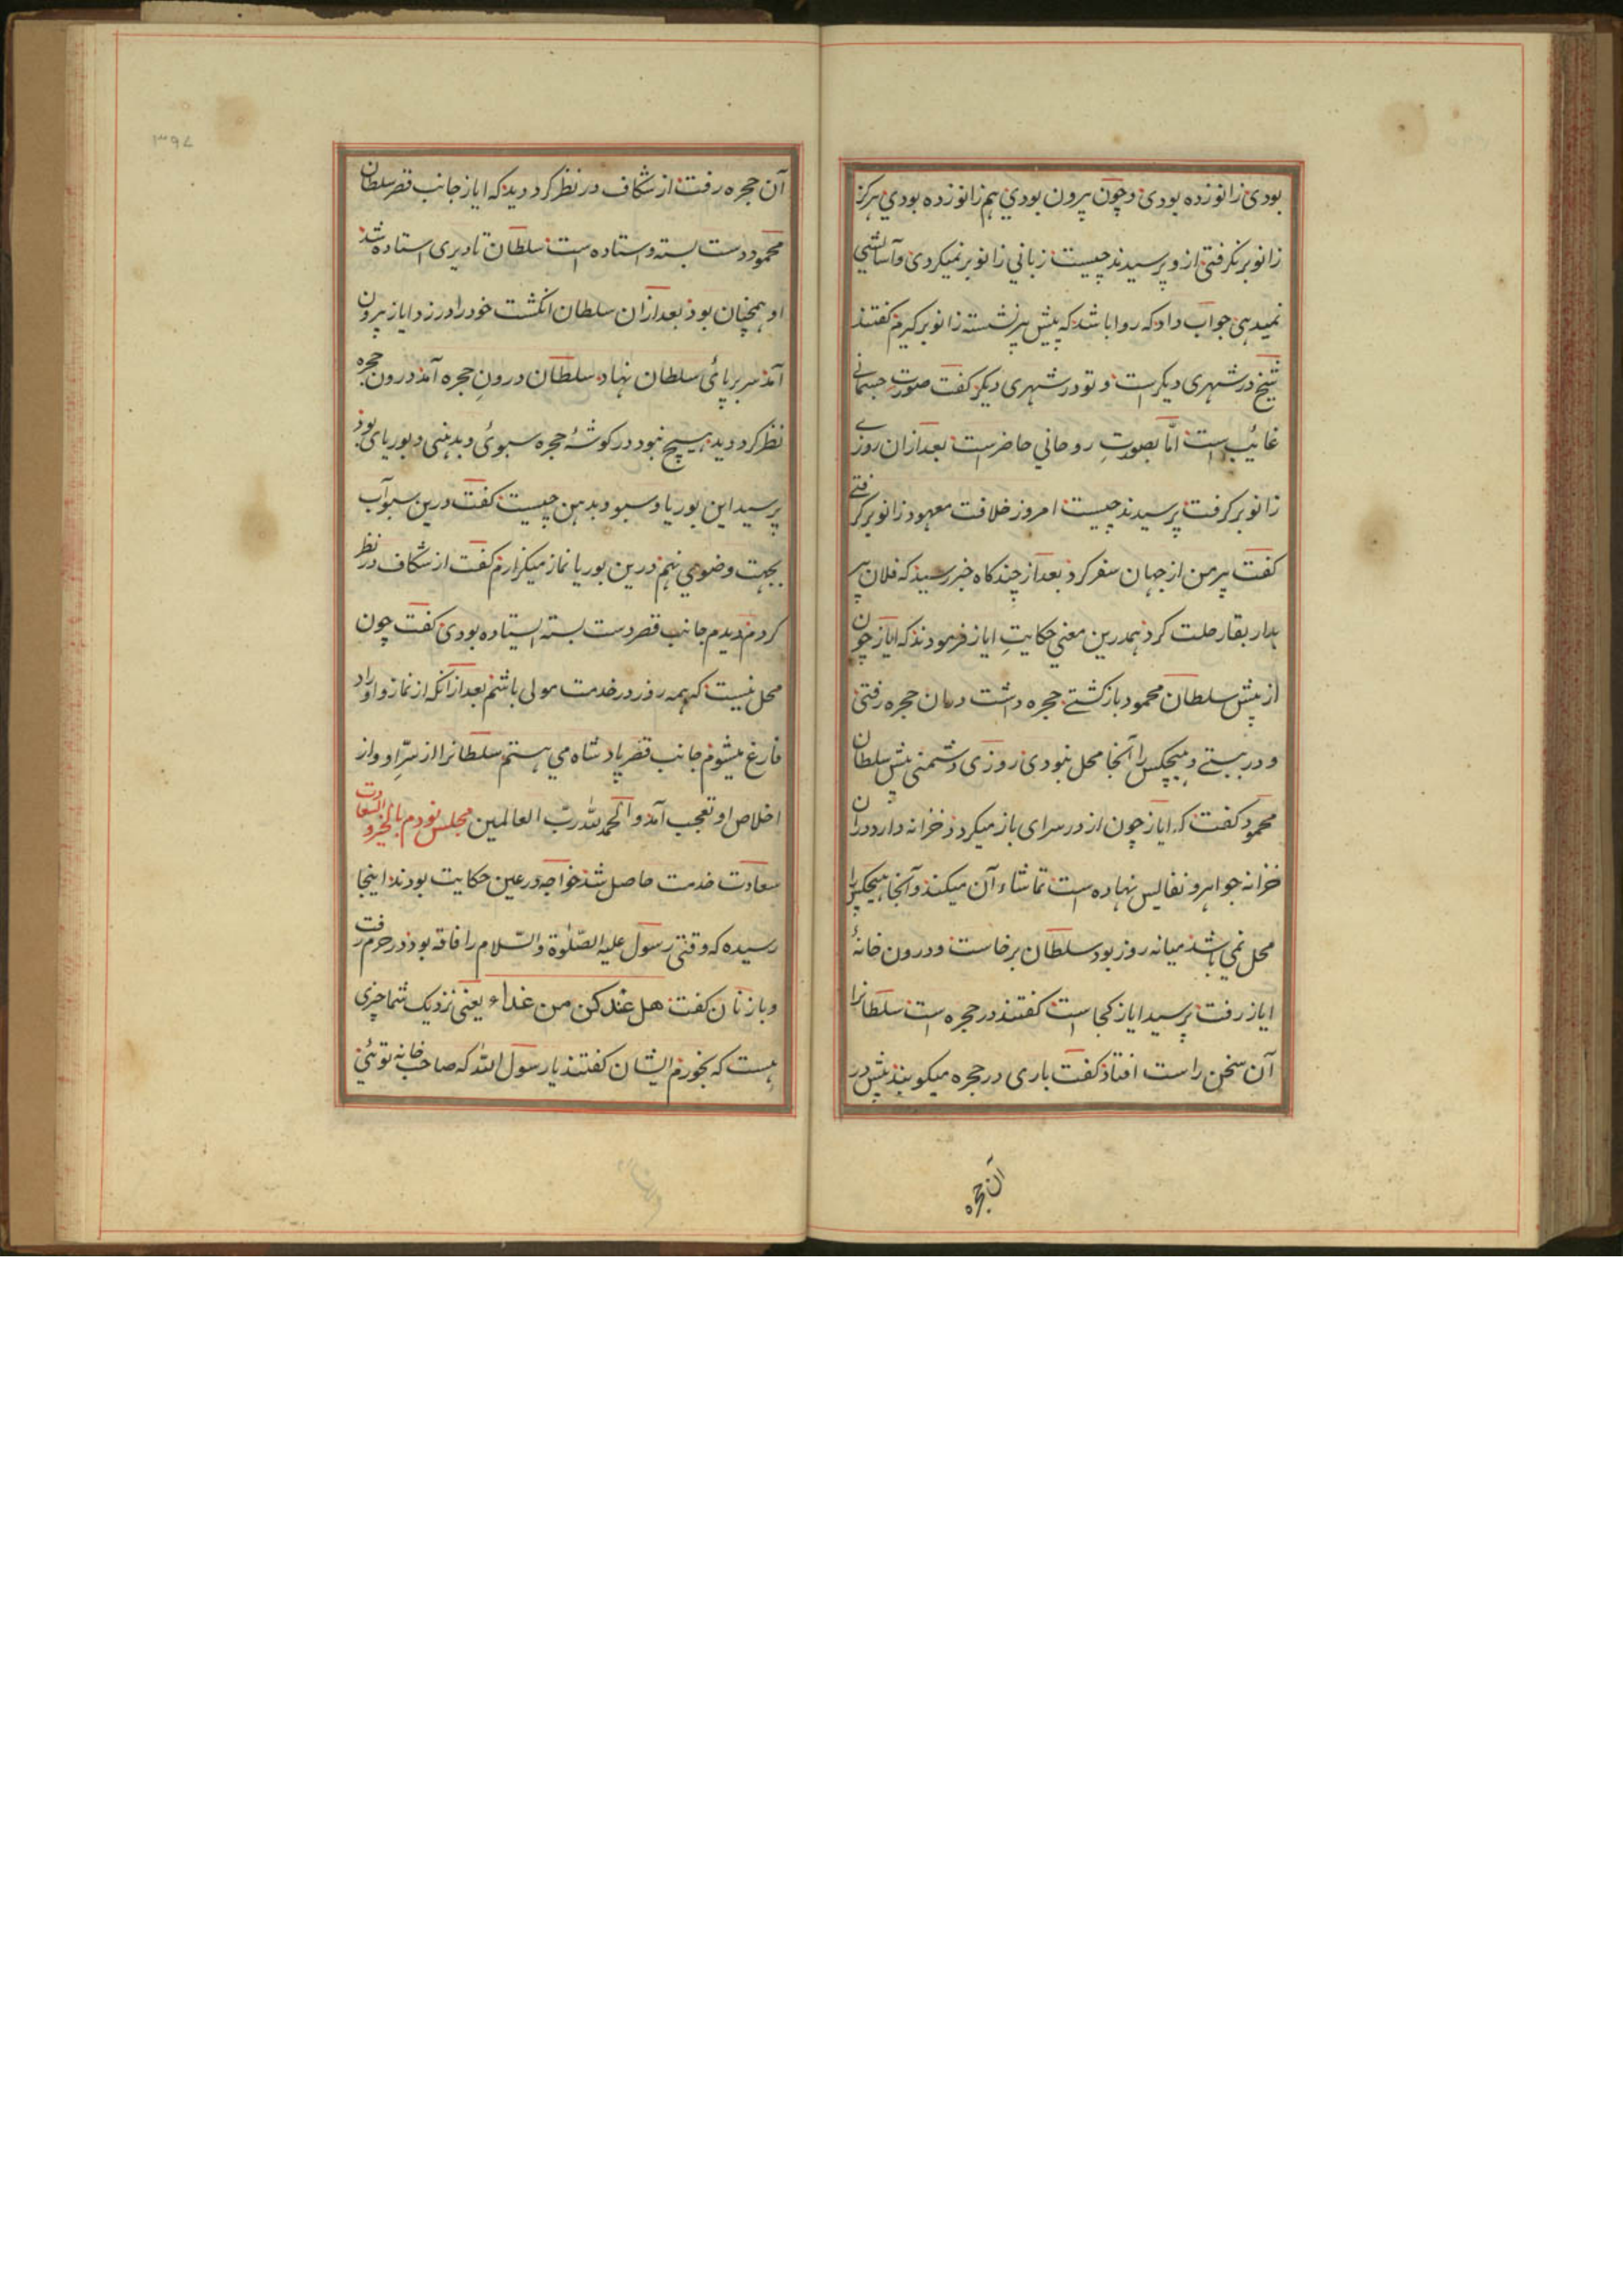 بودی زانو زده بودی و چون بیرون بودی هم زانو زده بودی هرکز
زانو برنکرفتی ازو پرسیدند چیست زمانی زانو برنمیکردی و آسایشی
نمیدهی جواب داد که روا باشد که پیش پیر نشسته زانو برکیرم کفتند
شیخ در شهری دیکر است و تو در شهری دیکر کفت صورت جسمانی
غائب است امّا بصورتِ روحانی حاضر است بعد ازان روزے
زانو برکرفت پرسیدند چیست امروز خلافت معهود زانو برکرفتے
کفت پیر من از جهان سفر کرد بعد از چند کاه خبر رسید که فلان پیر
بدار بقا رحلت کرد همدرین معنی حکایتِ ایاز فرمودند که ایاز چون
از پیش سلطان محمود بازکشتے حجره داشت دران حجره رفتی
و در ببستے و هیچکس را آنجا محل نبودی روزی دشمنی پیش سلطان
محمود کفت که ایاز چون از در سرای باز میکردد خزانه دارد دران
خزانه جواهر و نفایس نهاده است تماشاء آن میکند و آنجا هیچکس را
محل نمی باشد میانه روز بود سلطان برخاست و درون خانهٔ
ایاز رفت پرسید ایاز کجا است کفتند در حجره است سلطانرا
آن سخن راست افتاد کفت باری در حجره میکوبند پیش در
آن حجره
٣٩٧
آن حجره رفت از شکاف در نظر کرد دید که ایاز جانب قصر سلطان
محمود دست بسته و استاده است سلطان تا دیری استاده شد
او همچنان بود بعد ازان سلطان انکشت خود را در زد ایاز بیرون
آمد سر بر پائی سلطان نهاد سلطان درونِ حجره آمد درون حجره
نظر کرد دید هیچ نبود در کوشهٔ حجره سبوئی و بدهنی و بوریای بود
پرسید این بوریا و سبو و بدهن چیست کفت درین سبو آب
بجهت وضو می نهم و درین بوریا نماز میکزارم کفت از شکاف در نظر
کردم دیدم جانب قصر دست بسته ایستاده بودی کفت چون
محل نیست که همه روز در خدمت مولی باشم بعد ازانکه از نماز و اوراد
فارغ میشوم جانب قصر پادشاه می هستم سلطانرا از سرّ او و از
اخلاص او تعجب آمد و الحمد لله ربّ العالمین مجلس نودم بالخیر و السعادت
سعادت خدمت حاصل شد خواجه در عین حکایت بودند اینجا
رسیده که وقتی رسول علیه الصّلوة و السّلام را فاقه بود در حرم رفت
و با زنان کفت هل عندکن من غداء یعنی نزدیک شما چیزی
هست که بخورم ایشان کفتند یا رسول الله که صاحب خانه توئی